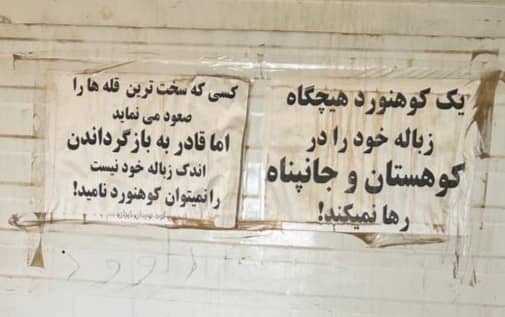 یک کوهنورد هیچگاه
زباله خود را در
کوهستان و جانپناه
رها نمیکند!
کسی که سخت ترین قله ها را
صعود می نماید
اما قادر به بازگرداندن
اندک زباله خود نیست
را نمیتوان کوهنورد نامید!